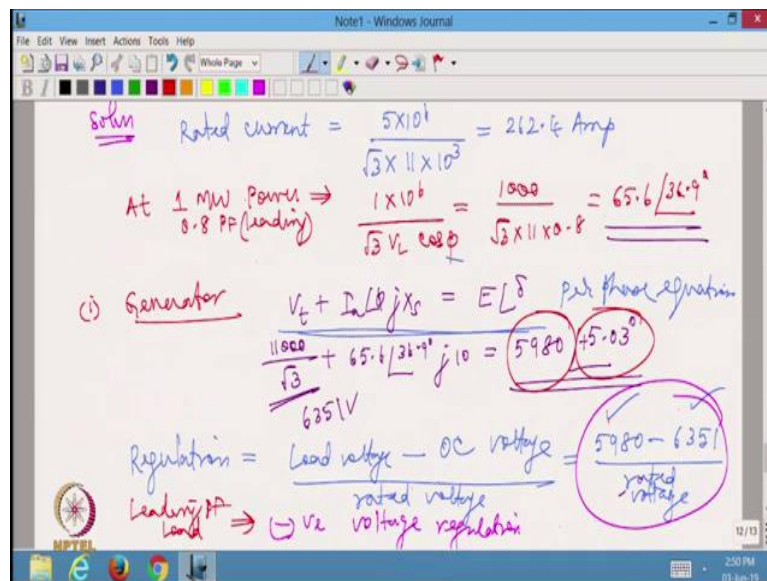 Note1 - Windows Journal
File Edit View Insert Actions Tools Help
Whole Page
B I
Soln Rated current = 5×10⁶ / √3 × 11 × 10³ = 262.4 Amp
At 1 MW Power ⇒ 1×10⁶ / √3 V_L cosφ = 1000 / √3 × 11 × 0.8 = 65.6 ∠36.9°
0.8 PF (leading)
(i) Generator V_t + I_a∠φ jX_s = E∠δ per phase equation
11000 / √3 + 65.6 ∠36.9° j10 = 5980 +5.03°
6351V
Regulation = Load voltage - OC voltage / rated voltage = 5980 - 6351 / rated voltage
Leading PF Load ⇒ (-)ve voltage regulation
NPTEL
12/13
2:50 PM
03-Jun-19